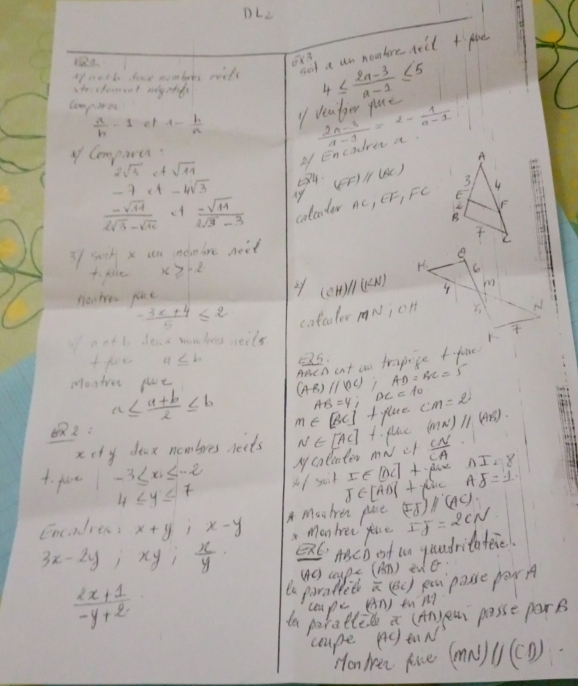 DL2
EX1:
1/ a et b deux nombres réels
strictement négatifs
Comparer
a/b - 1 et 1 - b/a
2/ Comparer:
2√3 et √11
-7 et -4√3
-√11/(2√3-√10) et -√11/(2√3-3)
3/ soit x un nombre réel
t.que x ≥ -2
Montrer que
-(3x+4)/5 ≤ 2
a et b deux nombres réels
t.que a ≤ b
Montrer que
a ≤ (a+b)/2 ≤ b
EX2:
x et y deux nombres réels
t.que -3 ≤ x ≤ -2
4 ≤ y ≤ 7
Encadrer: x+y ; x-y
3x-2y ; xy ; x/y
(2x+1)/(-y+2)
EX3
soit a un nombre réel t que
4 ≤ (2a-3)/(a-1) ≤ 5
1/ Vérifier que
(2a-3)/(a-1) = 2 - 1/(a-1)
2/ Encadrer a.
EX4
1/ (EF) // (BC)
calculer AC, EF, FC
A
3 4
E F
2
B
7 C
2/ (OH) // (KN)
calculer MN ; OH
H 6
4 M
7
EX5:
ABCD est un trapèze t-que
(AB) // (DC) ; AD = BC = 5
AB = 4 ; DC = 10
M ∈ [BC] t-que CM = 2
N ∈ [AC] t.que (MN) // (AB).
1/ calculer MN et CN/CA
2/ soit I ∈ [DC] t-que DI = 8
J ∈ [AD] t-que AJ = 1.
* Montrer que (IJ) // (AC).
* Montrer que IJ = 2CN
EX6: ABCD est un quadrilatère.
(AC) coupe (BD) en
la parallèle à (BC) qui passe par A
coupe (BD) en M
la parallèle à (AD) qui passe par B
coupe (AC) en N
Montrer que (MN) // (CD).